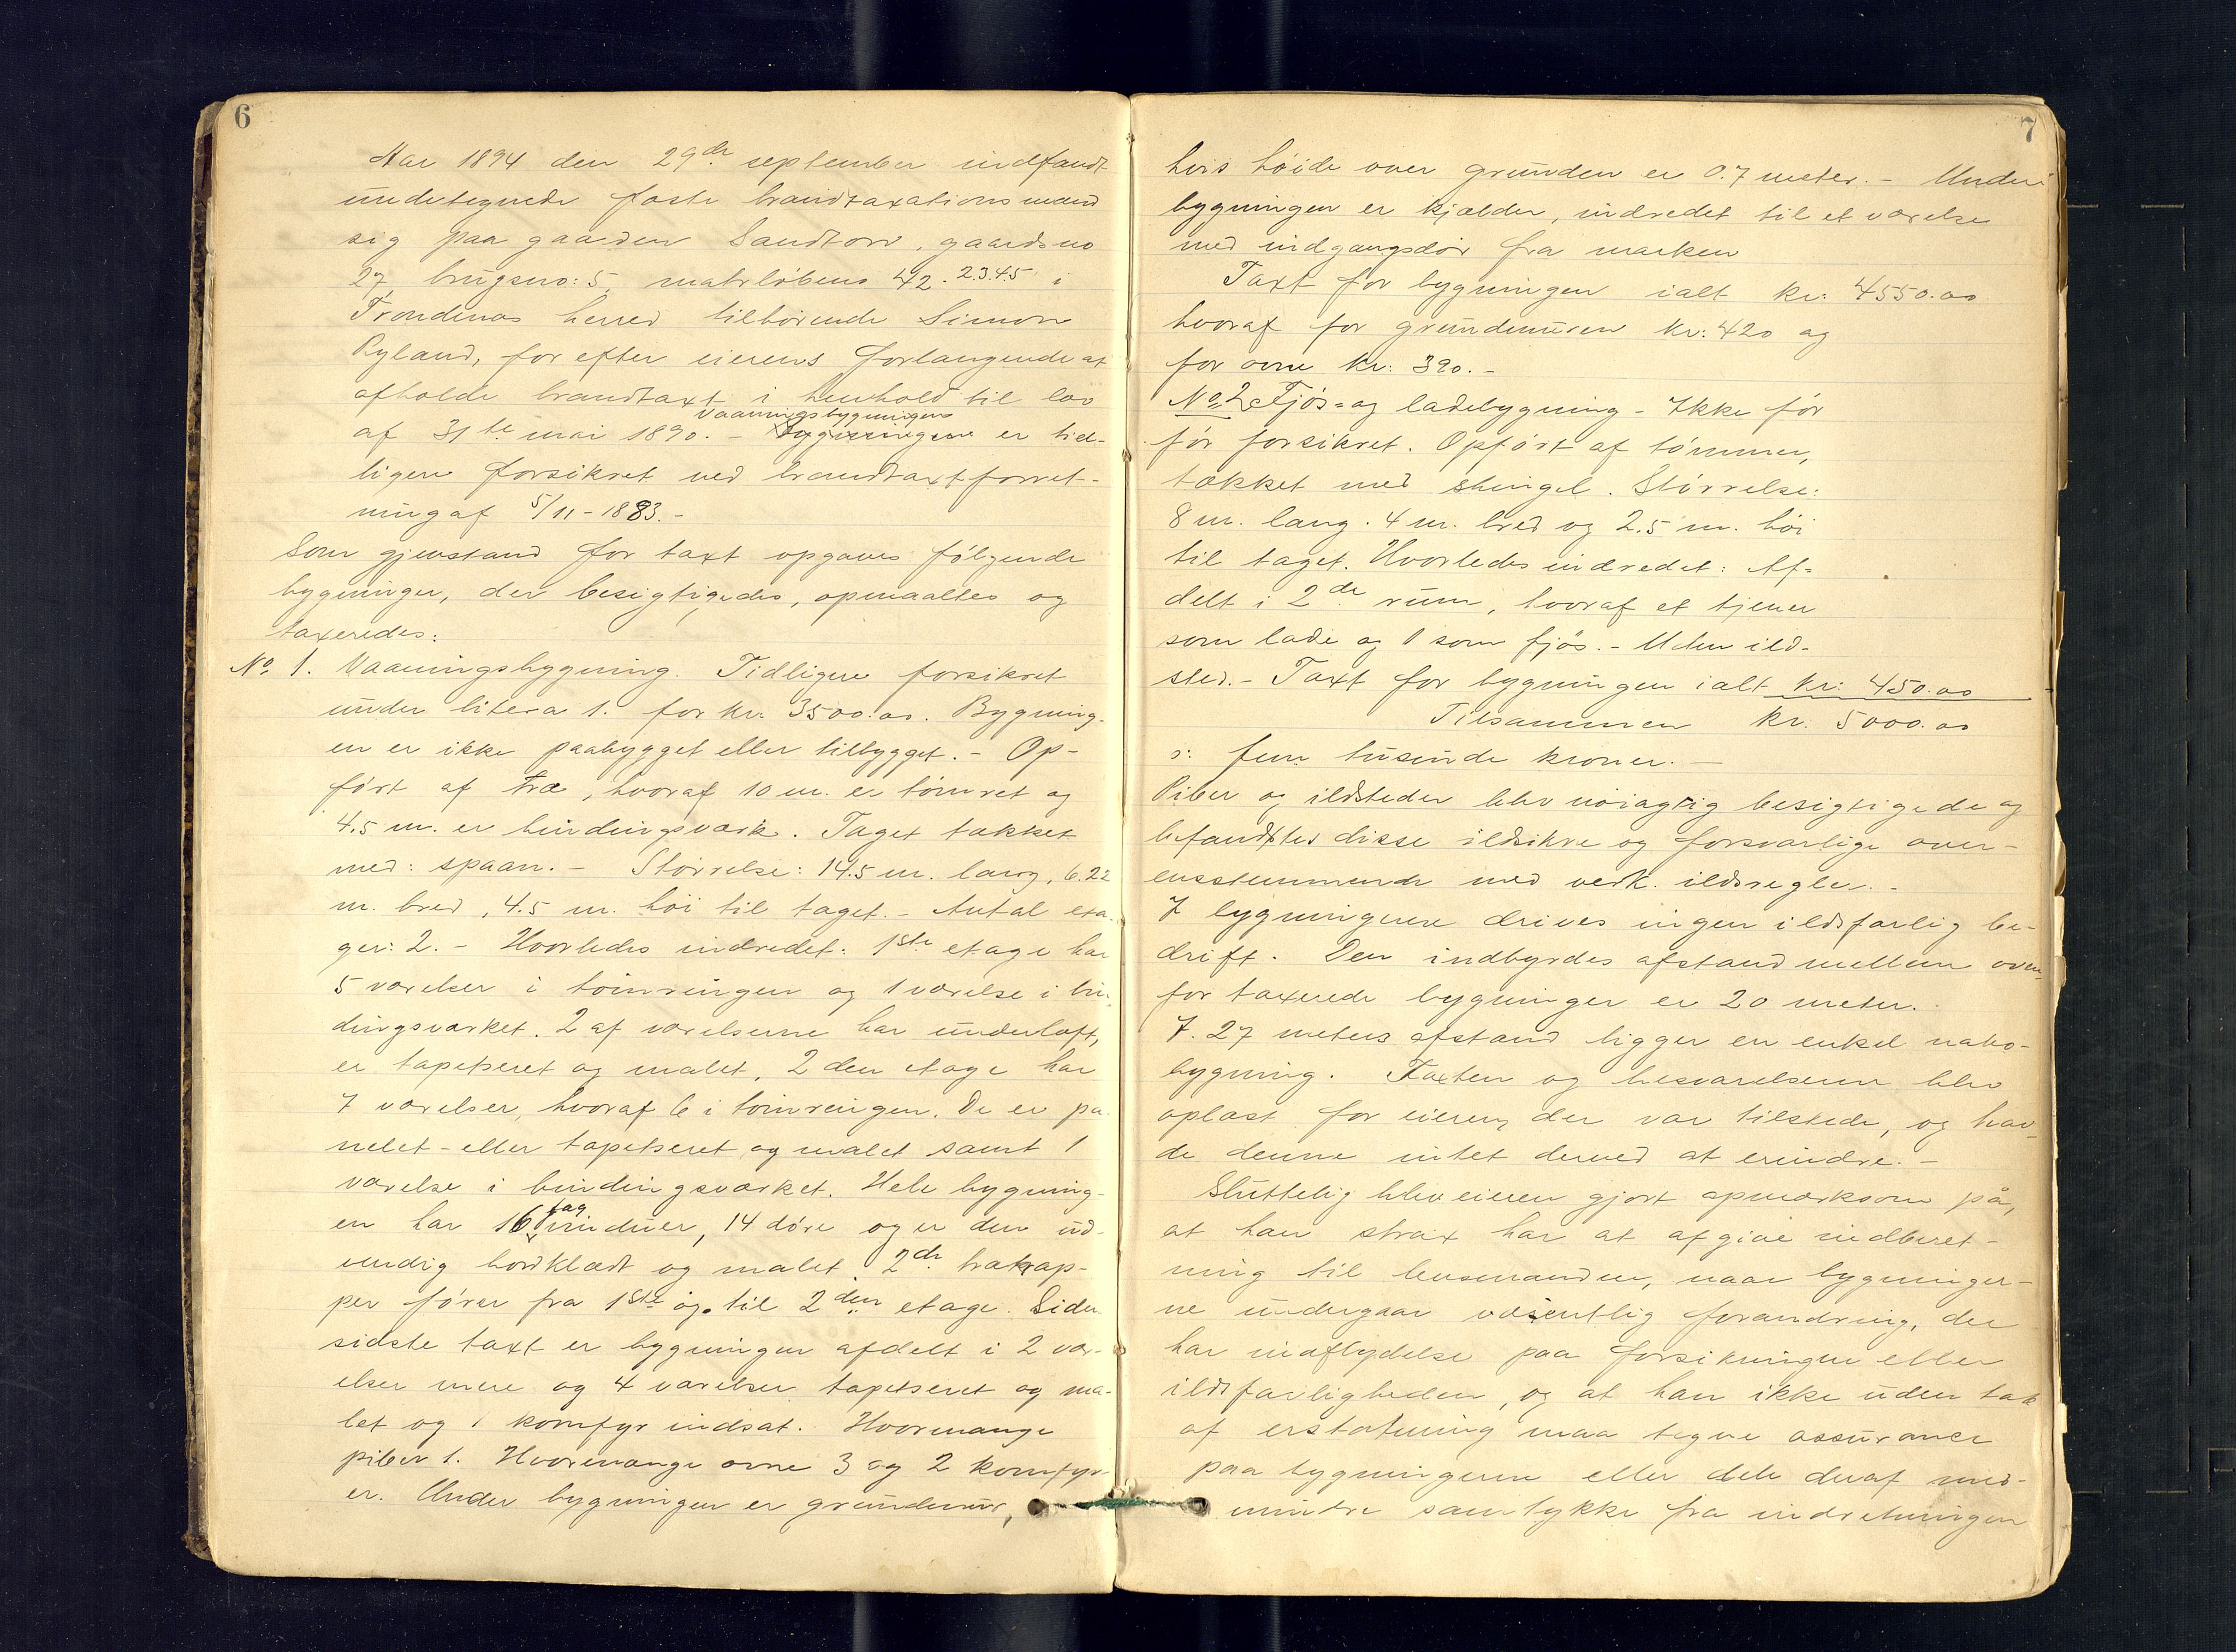 6
Aar 1894 den 29de september indfandt
undetegnede faste brandtaxationsmænd
sig paa gaarden Sandtorv, gaardsno
27, brugsno: 5, matrløbeno 42. 2.3.4.5 i
Trondenæs herred tilhørende Simon
Ryland, for efter eierens forlangende at
afholde brandtaxt i henhold til lov
vaaningsbygningens
af 31te mai 1890. – bygningerne er tid-
ligere forsikret ved brandtaxtforret-
ning af 5/11 – 1883. –
Som gjenstand for taxt opgaves følgende
bygninger, der besigtigedes, opmaaltes og
taxeredes:
No 1. Vaaningsbygning. Tidligere forsikret
under litera 1. for kr. 3500.00. Bygning-
en er ikke paabygget eller tilbygget. – Op-
ført af træ, hvoraf 10 m. er tømret og
4.5 m. er bindingsværk. Taget tækket
med: spaan. – Størrelse: 14.5 m. lang, 6.22
m. bred, 4.5 m. høi til taget. – Antal eta-
ger: 2. – Hvorledes indredet: 1ste etage har
5 værelser i tømringen og 1 værelse i bin-
dingsværket. 2 af værelserne har underloft,
er tapetseret og malet, 2den etage har
7 værelser, hvoraf 6 i tømringen. De er pa-
nelet- eller tapetseret og malet samt 1
værelse i bindingsværket. Hele bygning-
fag
en har 16 vinduer, 14 døre og er den ud-
vendig bordklædt og malet. 2de trætrap-
per fører fra 1ste og til 2den etage. Siden
sidste taxt er bygningen afdelt i 2 vær-
elser mere og 4 værelser tapetseret og ma-
let og 1 komfyr indsat. Hvormange
piber 1. Hvormange ovne 3 og 2 komfyr-
er. Under bygningen er grundmur,
7
hvis høide over grunden er 0.7 meter. – Under
bygningen er kjælder, indredet til et værelse
med indgangsdør fra marken
Taxt for bygningen ialt kr: 4550.00
hvoraf for grundmuren kr: 420 og
for ovne kr: 390. –
No 2 Fjøs- og ladebygning – Ikke før
før forsikret. Opført af tømmer,
tækket med shingel. Størrelse:
8 m. lang. 4 m. bred og 2.5 m. høi
til taget. Hvorledes indredet: Af-
delt i 2de rum, hvoraf et tjener
som lade og 1 som fjøs. – Uden ild-
sted. – Taxt for bygningen ialt kr: 450.00
Tilsammen kr. 5000.00
ɔ: fem tusinde kroner. –
Piber og ildsteder blev nøiagtig besigtigede og
befandtes disse ildsikre og forsvarlige over-
ensstemmende med vedk. ildsregler. –
I bygningerne drives ingen ildsfarlig be-
drift. Den indbyrdes afstand mellem oven-
for taxerede bygninger er 20 meter.
I 27 meters afstand ligger en enkel nabo-
bygning. Taxten og besvarelserne blev
oplæst for eieren, der var tilstede, og hav-
de denne intet derved at erindre. –
Sluttelig blev eieren gjort opmærksom på,
at han strax har at afgive indberet-
ning til lensmanden, naar bygninger-
ne undergaar væsentlig forandring, der
har indflydelse paa forsikringen eller
ildsfarligheden, og at han ikke uden tab
af erstatning maa tegne assurance
paa bygningerne eller dele deraf med-
mindre samtykke fra indretningen